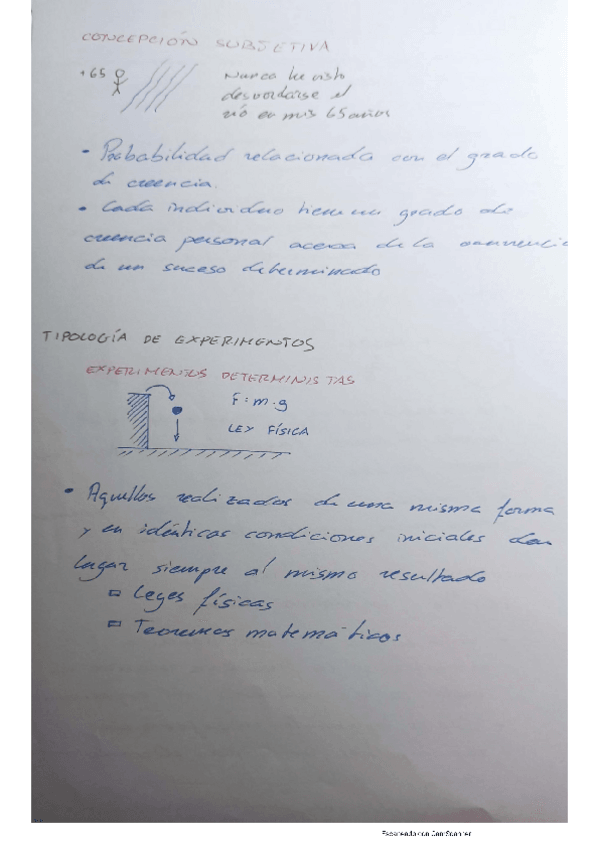 CONCEPCIÓN SUBJETIVA
+65
Nunca he visto
desvordarse el
río en mis 65 años
• Probabilidad relacionada con el grado
de creencia.
• Cada individuo tiene un grado de
creencia personal acerca de la ocurrencia
de un suceso determinado
TIPOLOGÍA DE EXPERIMENTOS
EXPERIMENTOS DETERMINISTAS
F = m·g
LEY FÍSICA
• Aquellos realizados de una misma forma
y en idénticas condiciones iniciales dan
lugar siempre al mismo resultado
Leyes físicas
Teoremas matemáticos
Escaneado con CamScanner